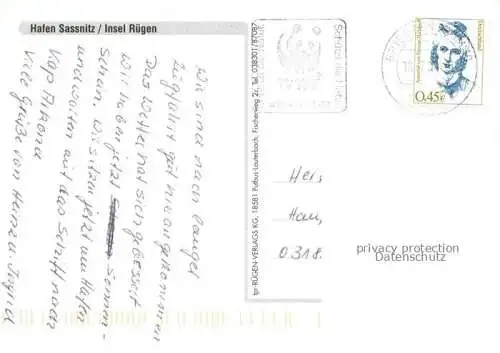 Hafen Sassnitz / Insel Rügen
Wir sind nach langer
Zugfahrt gut hier angekommen
Das Wetter hat sich gebessert
Wir haben jetzt Sonnen-
schein. Wir sitzen jetzt am Hafen
und warten auf das Schiff nach
Kap Arkona
Viele Grüße von Heinz u. Ingrid
tpr-RÜGEN-VERLAGS KG, 18581 Putbus-Lauterbach, Fischerweg 2c, Tel. 038301/87087
WWF
Deutschland
0,45€
Her,
Hau,
0318.
privacy protection
Datenschutz